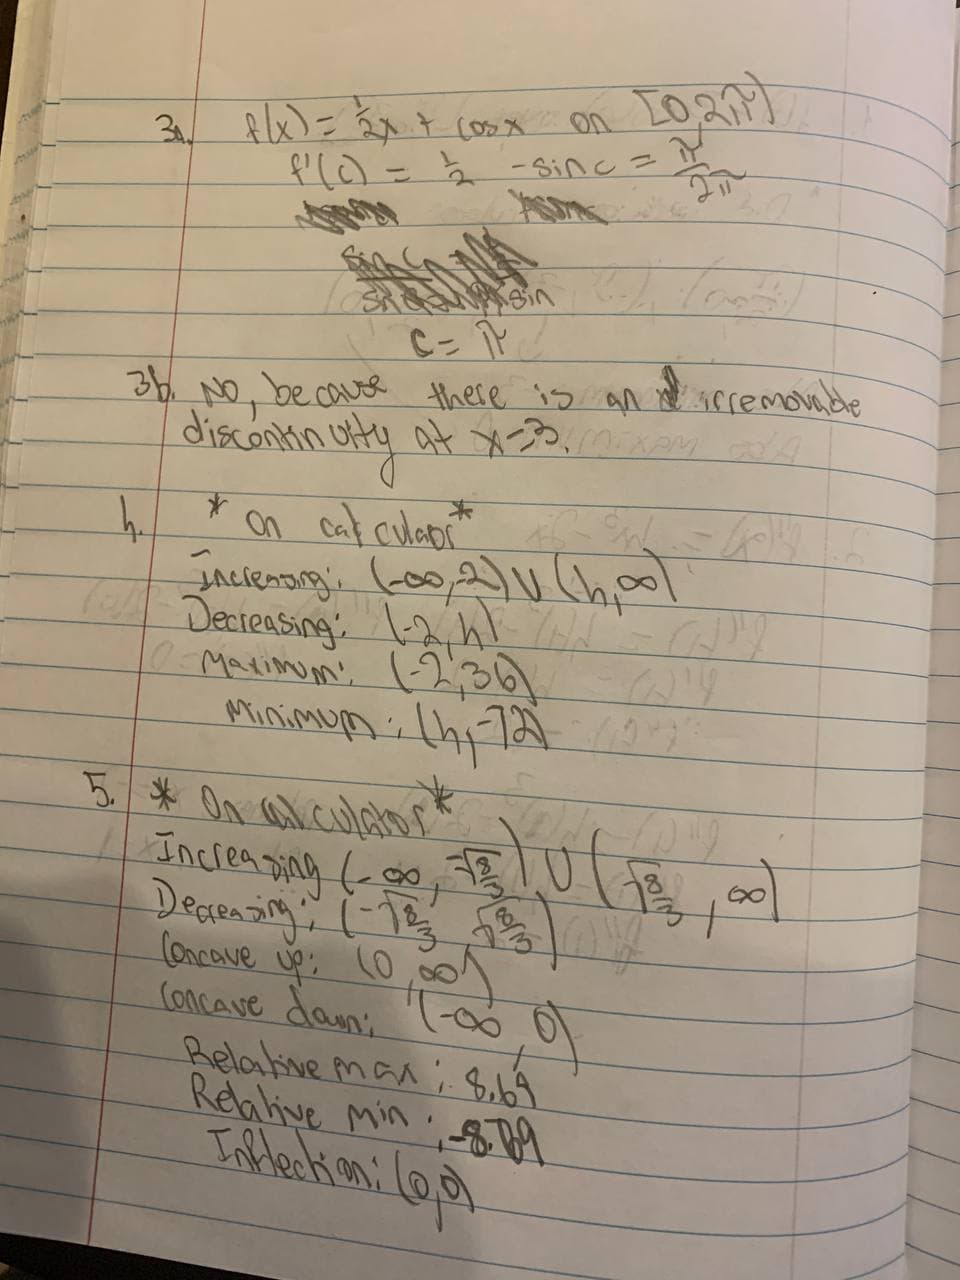 3a. f(x) = 1/2x + cosx on [0,2π]
f'(c) = 1/2 - sinc = π/2π
c = π
3b. No, because there is an irremovable
discontinuity at x=3.
4. *On calculator*
Increasing: (-∞,-2) ∪ (4,∞)
Decreasing: (-2,4)
Maximum: (-2,36)
Minimum: (4,-72)
5. *On calculator*
Increasing (-∞, -√8/3) ∪ (√8/3, ∞)
Decreasing: (-√8/3, √8/3)
Concave up: (0,∞)
Concave down: (-∞,0)
Relative max: 8.69
Relative min: -8.709
Inflection: (0,0)